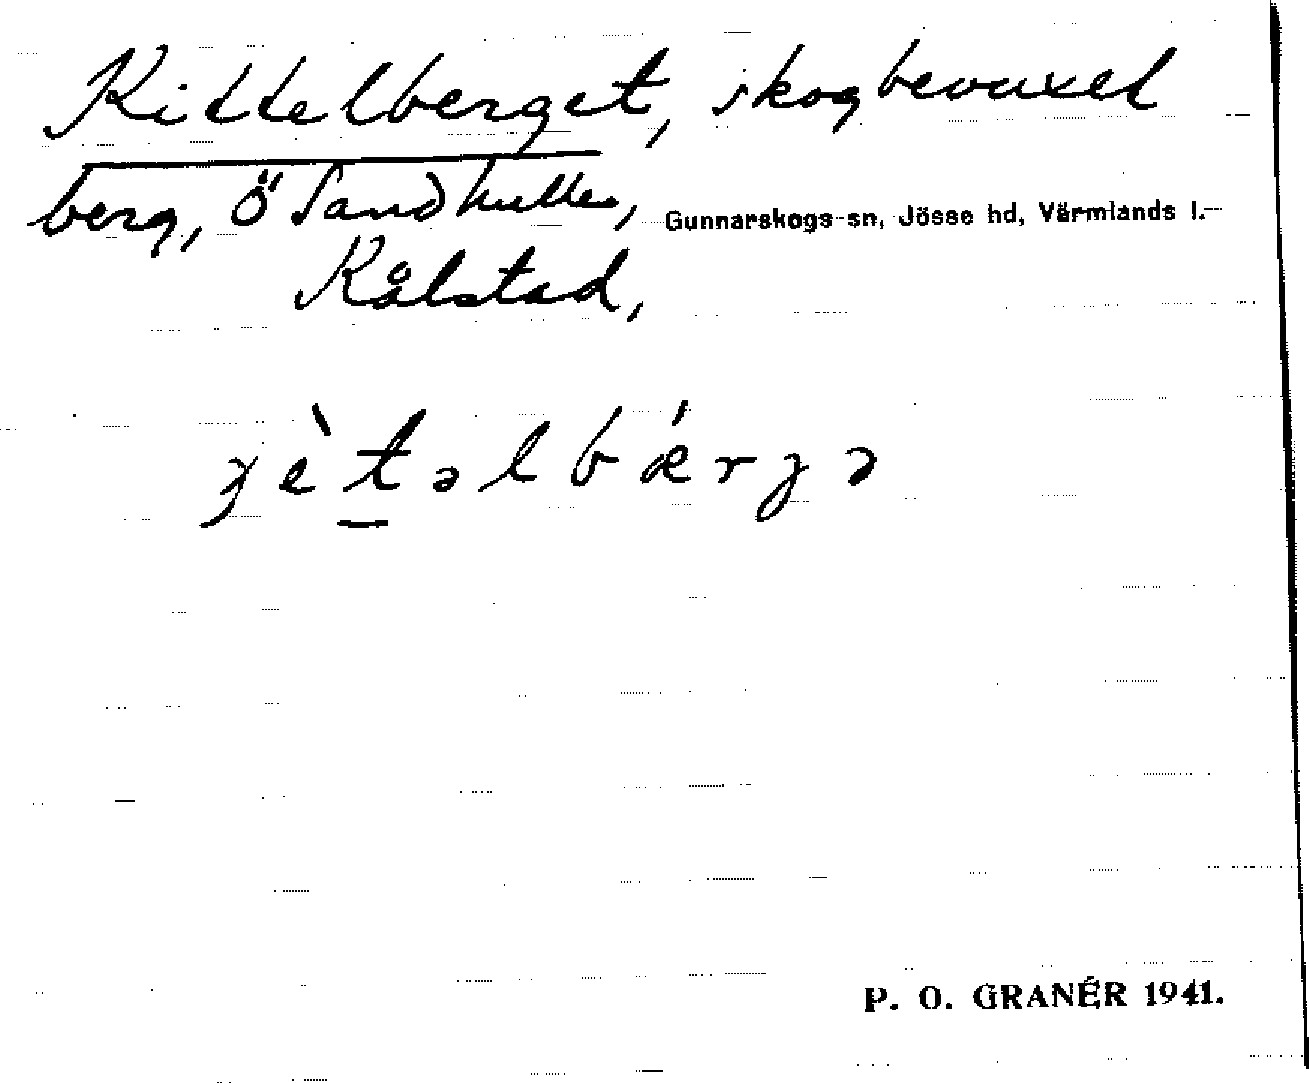 Kittelberget, skogbevuxet
berg, Ö Sandkullen, Gunnarskogs sn, Jösse hd, Värmlands l.
Kålstad,
P. O. GRANÉR 1941.